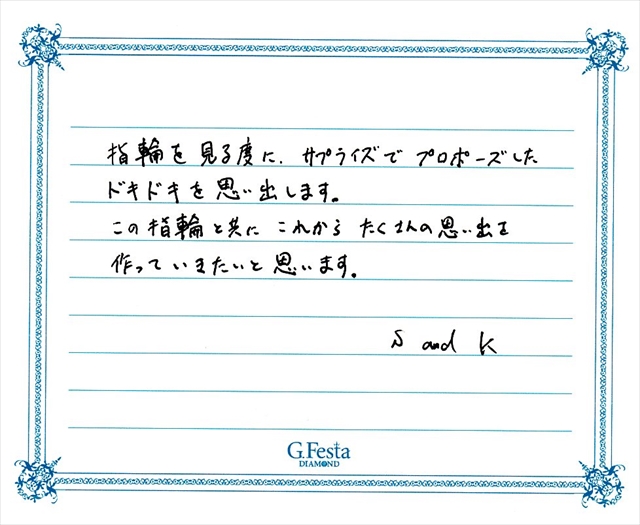 指輪を見る度に、サプライズでプロポーズした
ドキドキを思い出します。
この指輪と共にこれからたくさんの思い出を
作っていきたいと思います。
S and K
G.Festa
DIAMOND